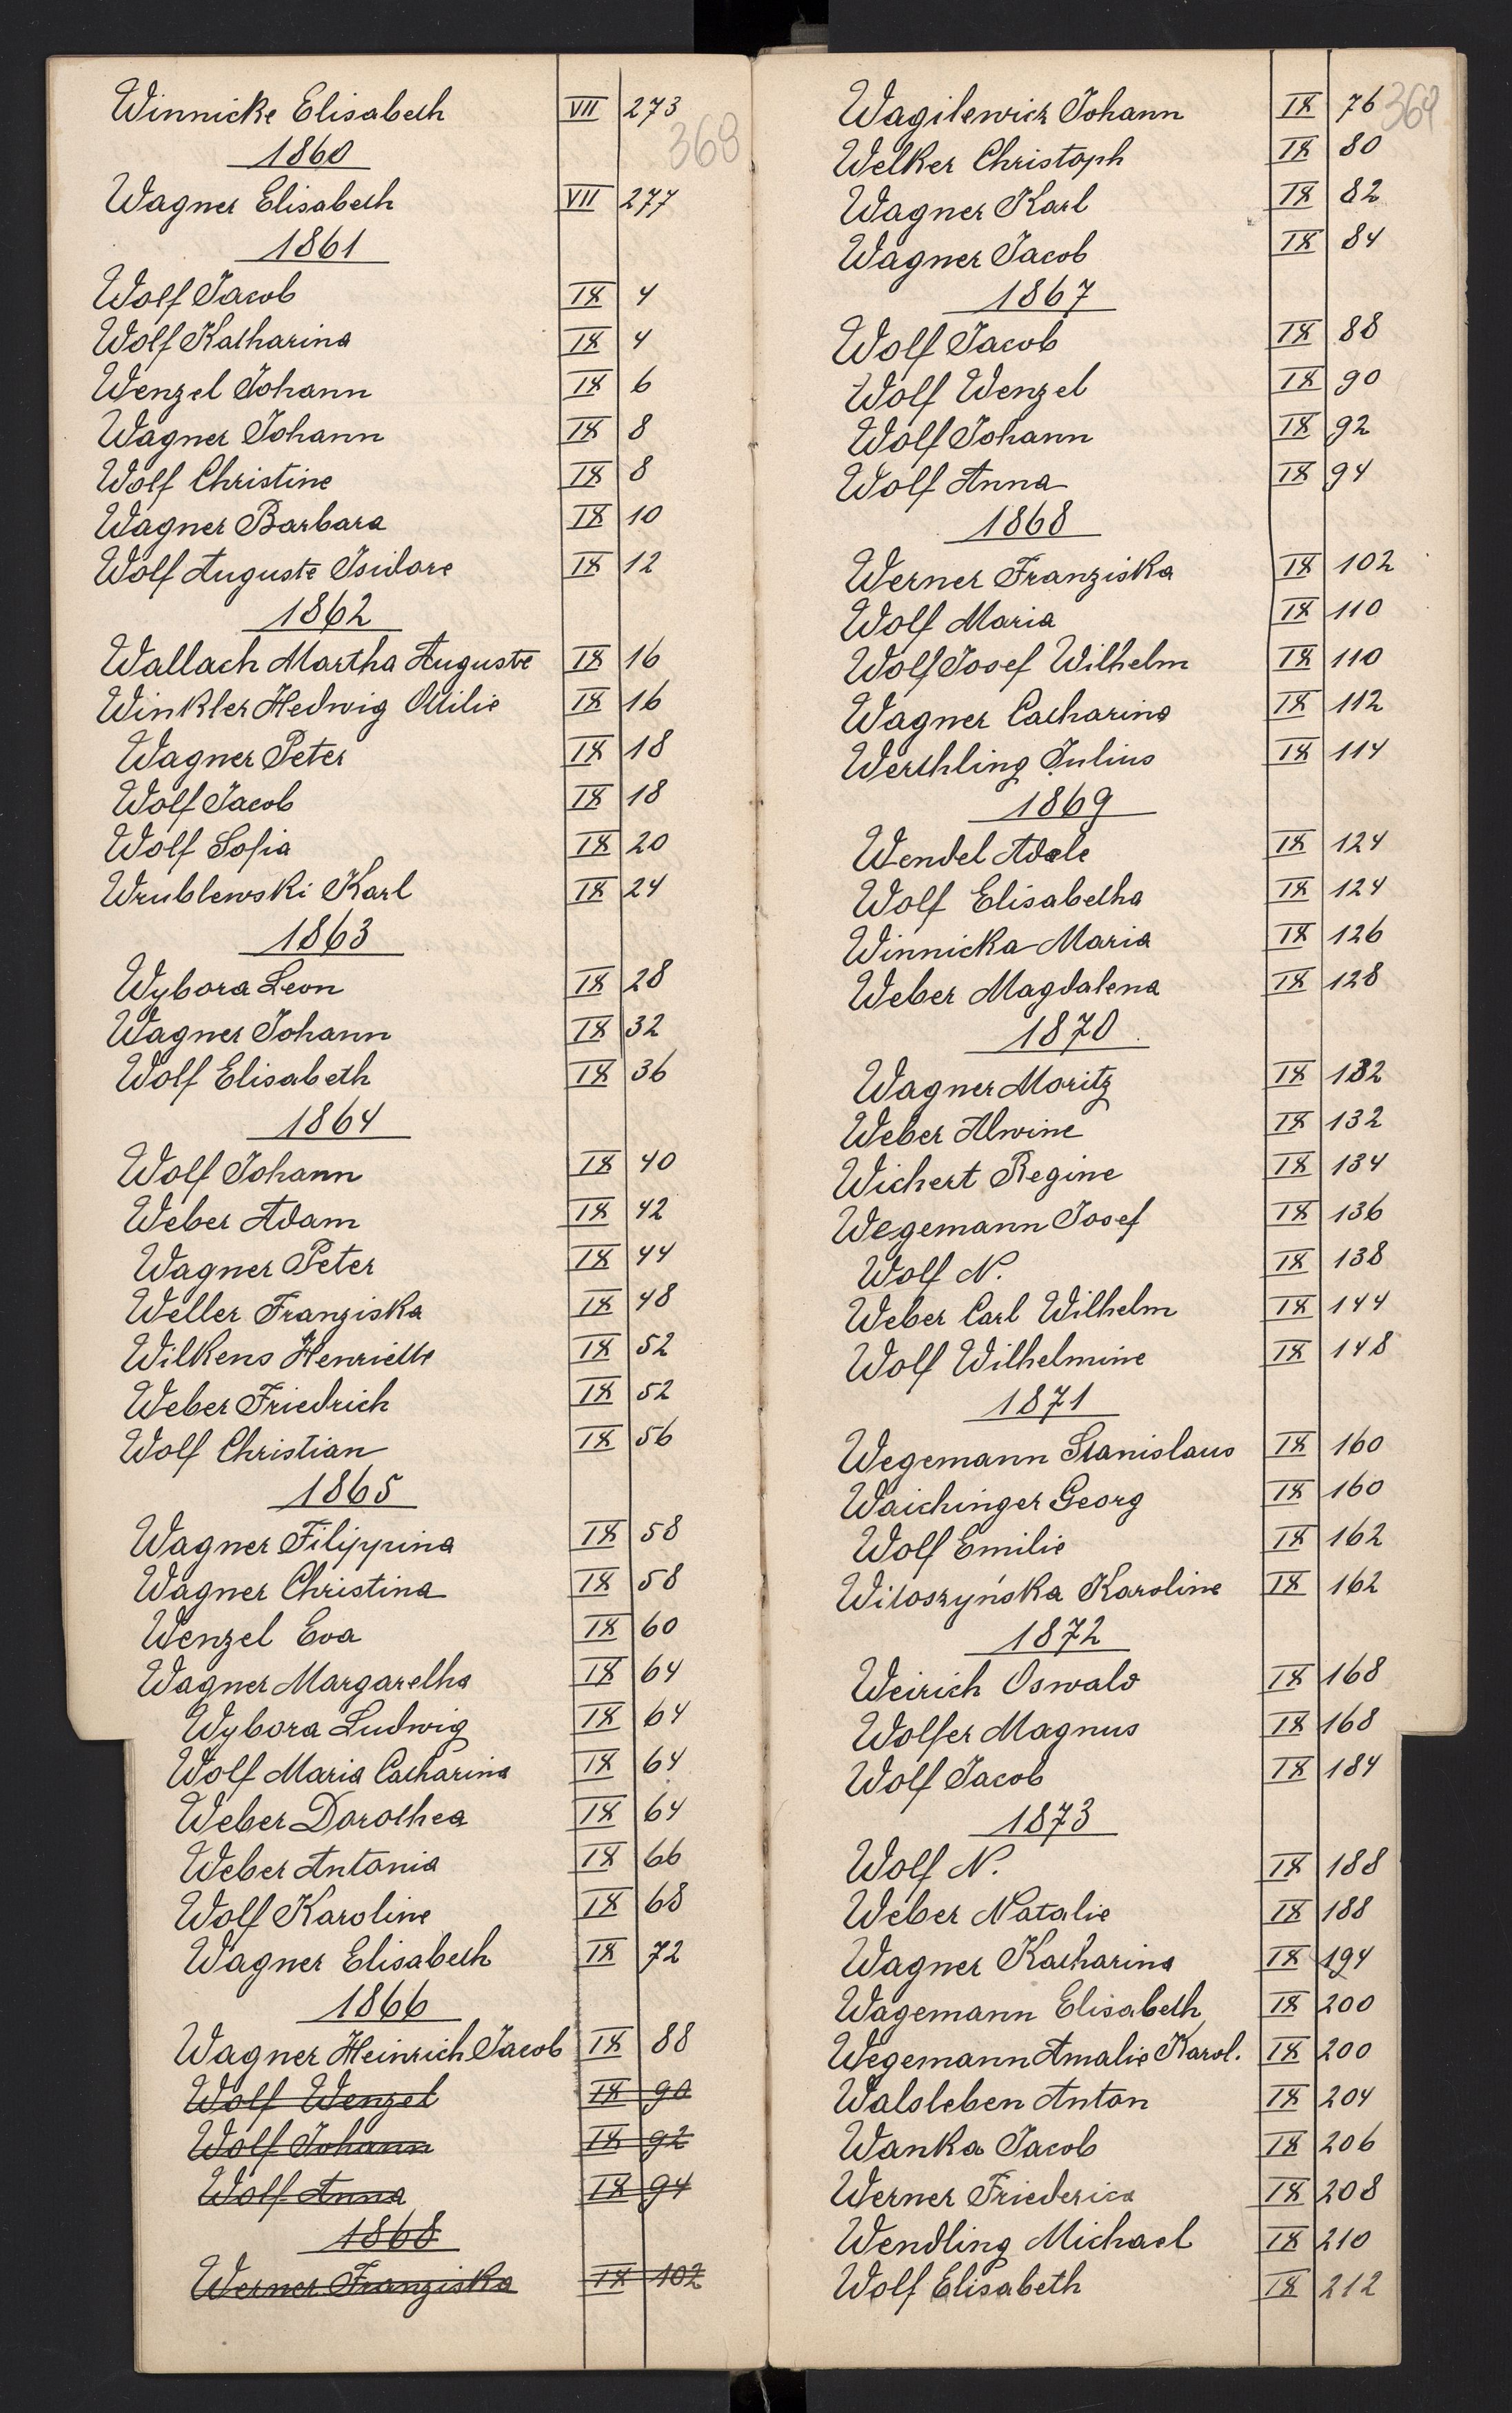 Winnicke Elisabeth VII 273
368
1860
Wagner Elisabeth VII 277
1861
Wolf Jacob IX 4
Wolf Katharina IX 4
Wenzel Johann IX 6
Wagner Johann IX 8
Wolf Christine IX 8
Wagner Barbara IX 10
Wolf Auguste Isidore IX 12
1862
Wallach Martha Auguste IX 16
Winkler Hedwig Ottilie IX 16
Wagner Peter IX 18
Wolf Jacob IX 18
Wolf Sofia IX 20
Wrublewski Karl IX 24
1863
Wybora Leon IX 28
Wagner Johann IX 32
Wolf Elisabeth IX 36
1864
Wolf Johann IX 40
Weber Adam IX 42
Wagner Peter IX 44
Weller Franziska IX 48
Wilkens Henriette IX 52
Weber Friedrich IX 52
Wolf Christian IX 56
1865
Wagner Filippina IX 58
Wagner Christina IX 58
Wenzel Eva IX 60
Wagner Margaretha IX 64
Wybora Ludwig IX 64
Wolf Maria Catharina IX 64
Weber Dorothea IX 64
Weber Antonia IX 66
Wolf Karoline IX 68
Wagner Elisabeth IX 72
1866
Wagner Heinrich Jacob IX 88
Wolf Wenzel IX 90
Wolf Johann IX 92
Wolf Anna IX 94
1868
Werner Franziska IX 102
Wagilewicz Johann IX 76
369
Welker Christoph IX 80
Wagner Karl IX 82
Wagner Jacob IX 84
1867
Wolf Jacob IX 88
Wolf Wenzel IX 90
Wolf Johann IX 92
Wolf Anna IX 94
1868
Werner Franziska IX 102
Wolf Maria IX 110
Wolf Josef Wilhelm IX 110
Wagner Catharina IX 112
Werthling Julius IX 114
1869
Wendel Adele IX 124
Wolf Elisabetha IX 124
Winnicka Maria IX 126
Weber Magdalena IX 128
1870
Wagner Moritz IX 132
Weber Alwine IX 132
Wichert Regine IX 134
Wegemann Josef IX 136
Wolf N. IX 138
Weber Carl Wilhelm IX 144
Wolf Wilhelmine IX 148
1871
Wegemann Stanislaus IX 160
Waichinger Georg IX 160
Wolf Emilie IX 162
Witoszyńska Karoline IX 162
1872
Weirich Oswald IX 168
Wolfer Magnus IX 168
Wolf Jacob IX 184
1873
Wolf N. IX 188
Weber Natalie IX 188
Wagner Katharina IX 194
Wagemann Elisabeth IX 200
Wegemann Amalie Karol. IX 200
Walsleben Anton IX 204
Wanka Jacob IX 206
Werner Friederica IX 208
Wendling Michael IX 210
Wolf Elisabeth IX 212